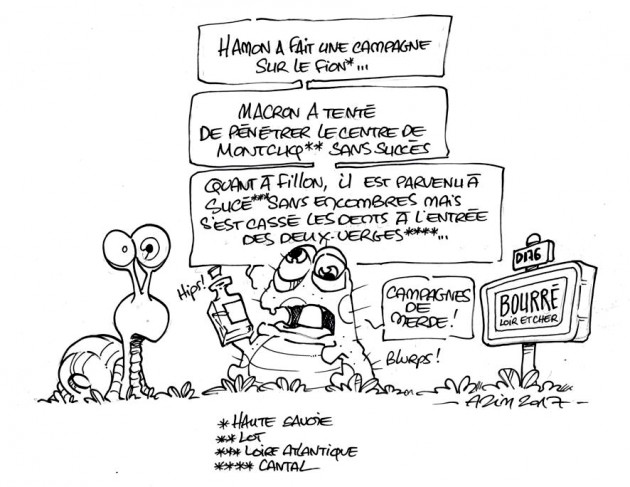 HAMON A FAIT UNE CAMPAGNE
SUR LE FION*...
MACRON A TENTÉ
DE PÉNÉTRER LE CENTRE DE
MONTCUQ** SANS SUCCÈS
QUANT À FILLON, IL EST PARVENU À
SUCÉ***SANS ENCOMBRES MAIS
S'EST CASSÉ LES DENTS À L'ENTRÉE
DES DEUX-VERGES****...
Hips!
CAMPAGNES
DE
MERDE!
BLURPS!
D176
BOURRÉ
LOIR ET CHER
AZIM 2017
* HAUTE SAVOIE
** LOT
*** LOIRE ATLANTIQUE
**** CANTAL